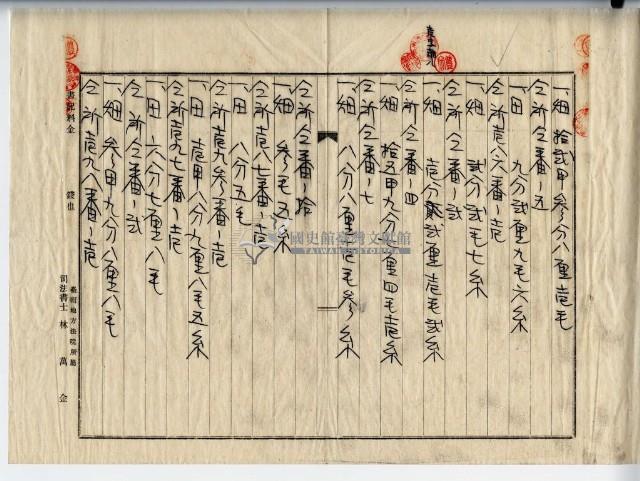 一、畑 拾貳甲參分八厘壱毛
仝所仝番ノ五
一、田 九分貳厘九毛六糸
仝所壱八六番ノ壱
一、畑 貳分貳毛七糸
仝所仝番ノ貳
一、畑 壱分貳厘壱毛貳糸
仝所仝番ノ四
一、畑 拾五甲九分厘四毛壱糸
仝所仝番ノ七
一、畑 八分八厘壱毛參糸
仝所仝番ノ拾
一、畑 參毛五糸
仝所壱八七番ノ壱
一、田 八分五毛
仝所壱九參番ノ壱
一、田 壱甲八分九厘八毛五糸
仝所壱九七番ノ壱
一、田 六八分七厘八毛
仝所仝番ノ貳
一、畑 參甲九分八厘八毛
仝所壱九八番ノ壱
書記料金 錢也
臺南地方法院所屬
司法書士 林萬金
國史館臺灣文獻館
TAIWAN HISTORICA